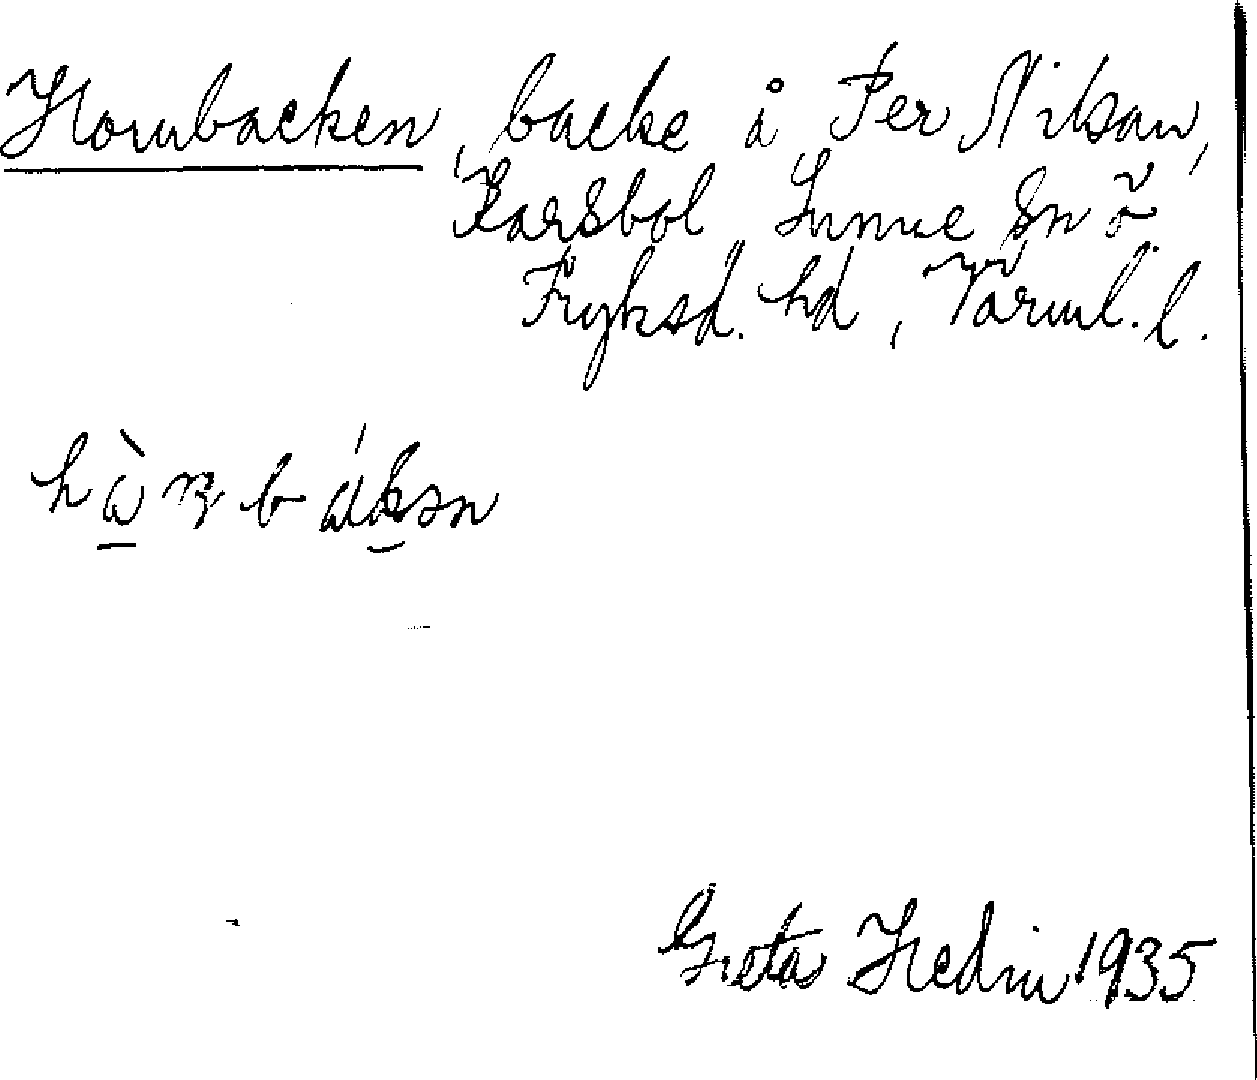 Hornbacken, backe å Per Nilsson,
Karsbol, Sunne sn ö
Fryksd. hd, Värml. l.
Greta Hedin 1935